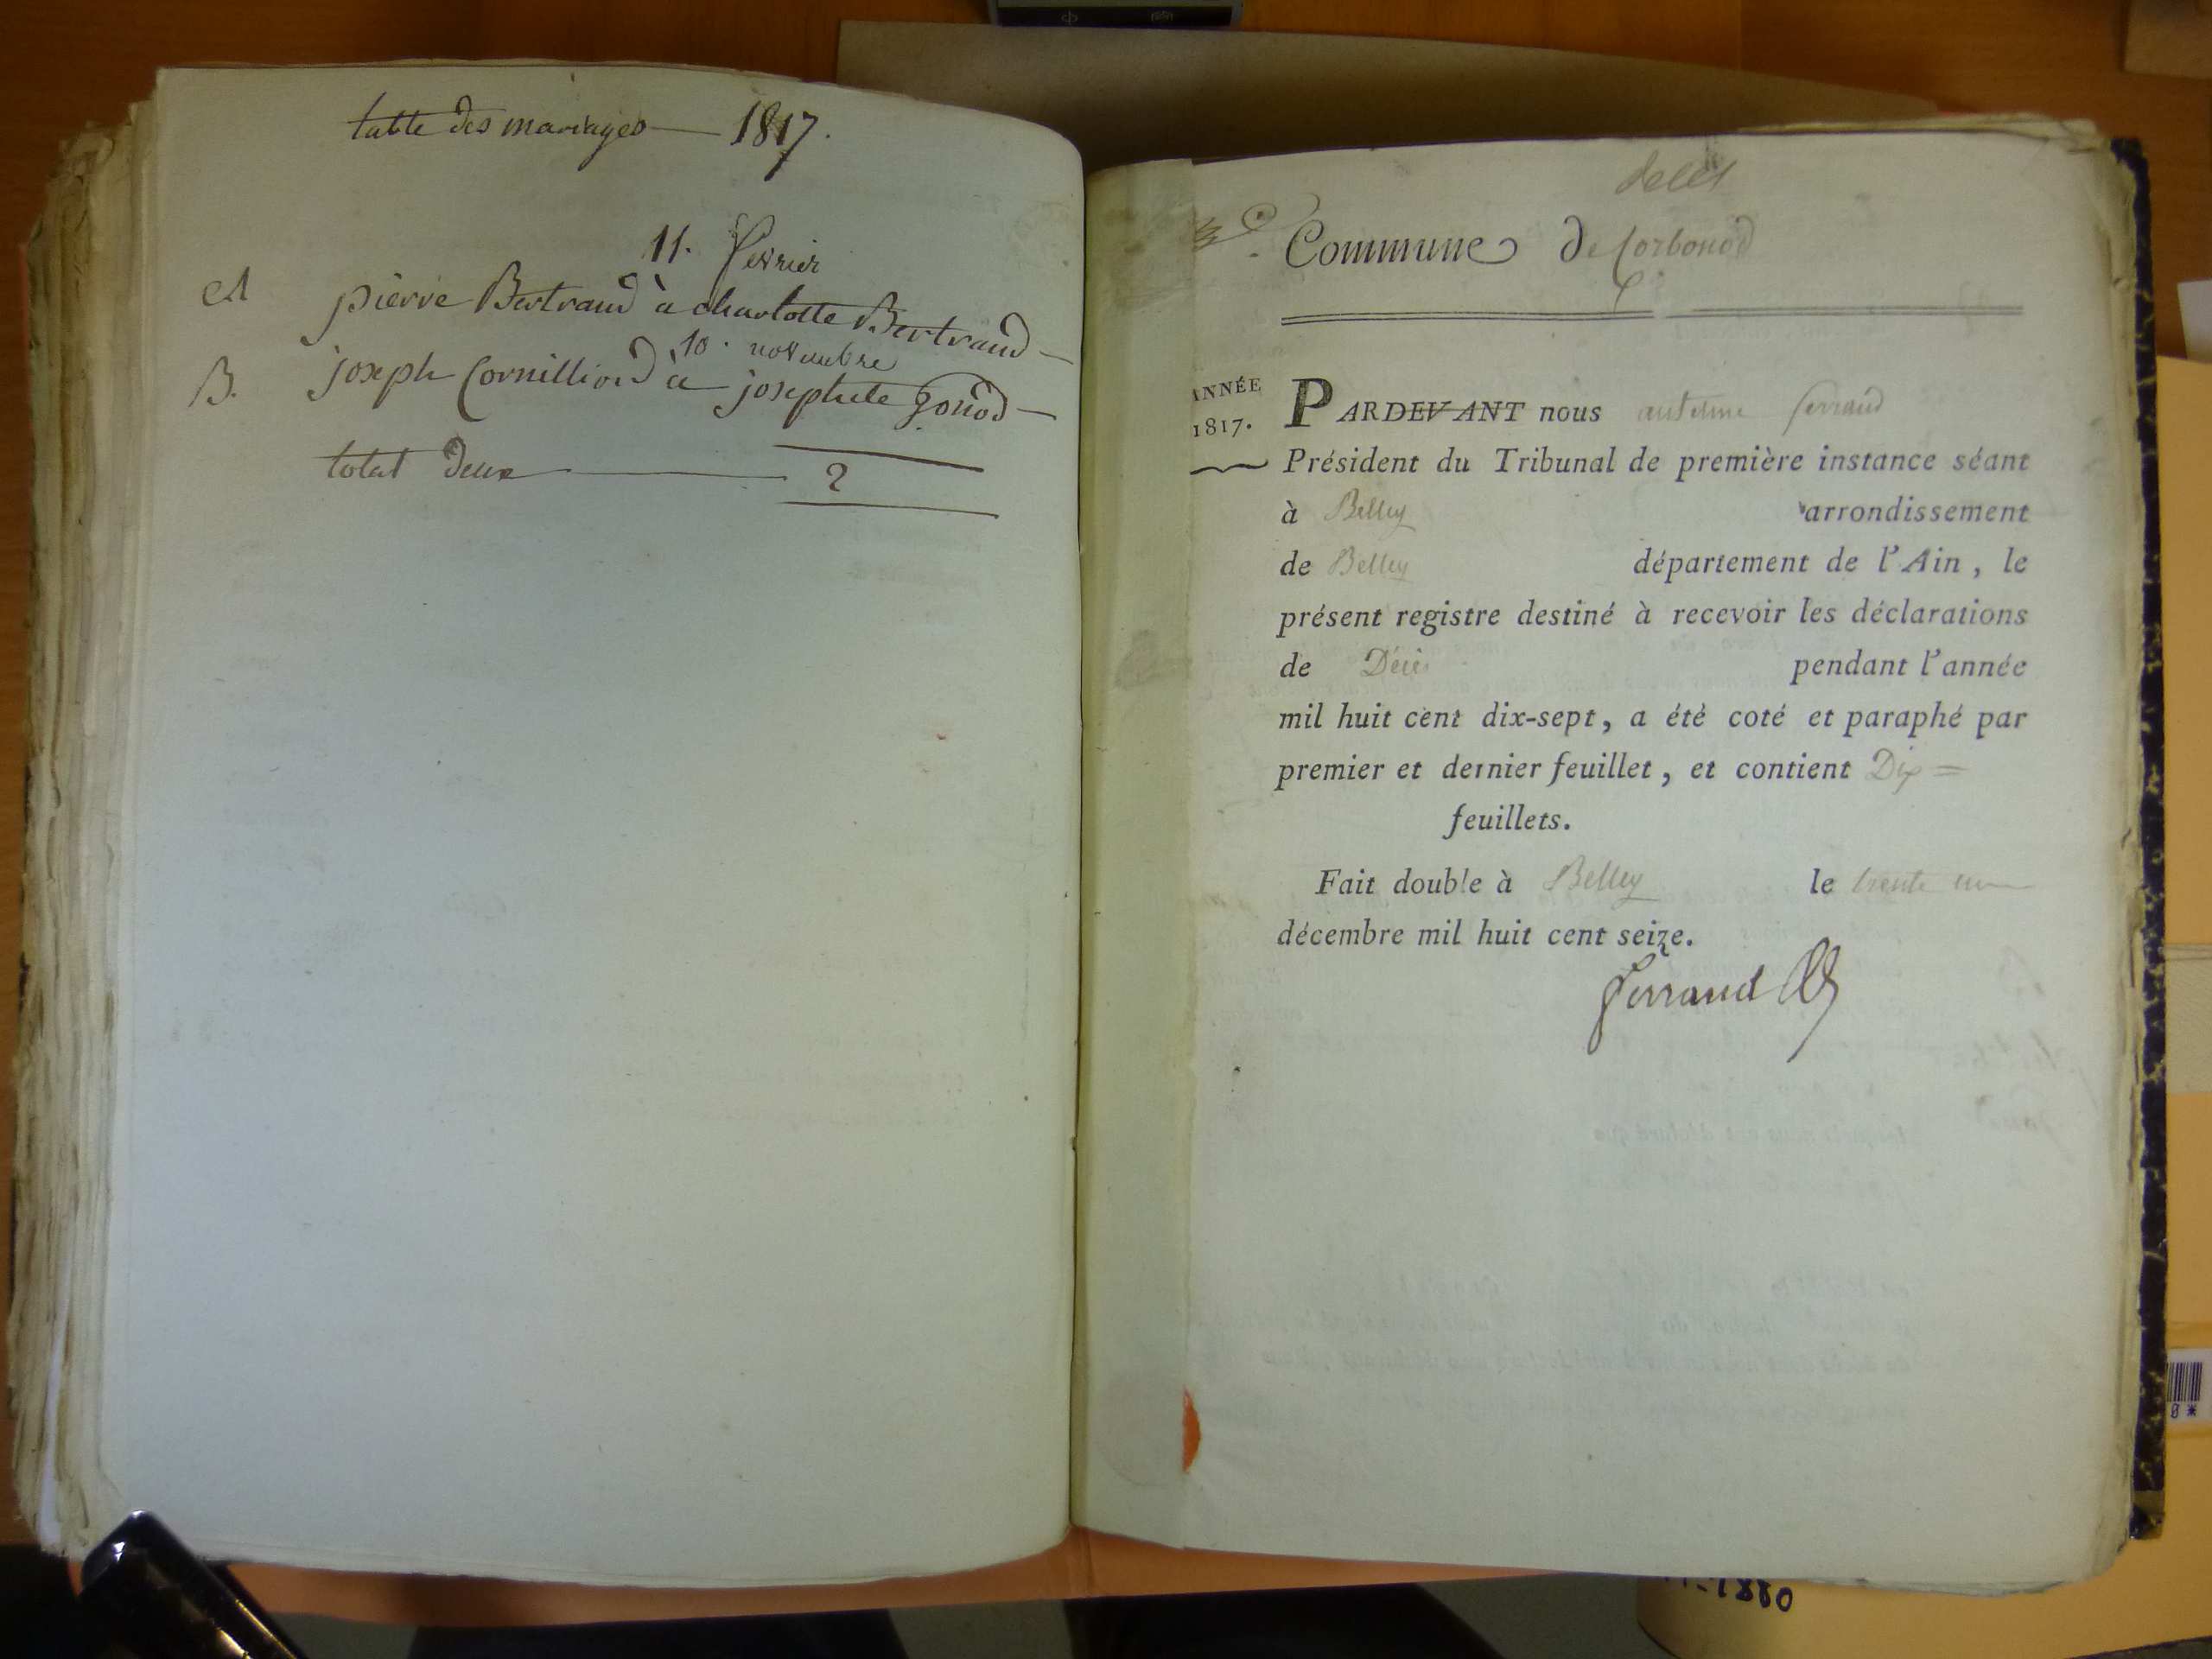 table des mariages — 1817.
11. fevrier
A pierre Bertrand à charlotte Bertrand —
10. novembre
B. joseph Cornilliond à josephte gonod —
total deux — 2
Commune de Corbonod
ANNÉE
1817.
PARDEVANT nous antelme ferrand
Président du Tribunal de première instance séant
à Belley arrondissement
de Belley département de l'Ain, le
présent registre destiné à recevoir les déclarations
de Décès pendant l'année
mil huit cent dix-sept, a été coté et paraphé par
premier et dernier feuillet, et contient Dix =
feuillets.
Fait double à Belley le trente un
décembre mil huit cent seize.
ferrand
1880